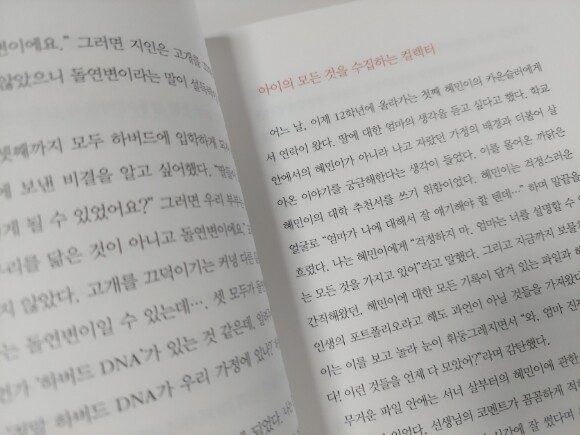 변이에요.” 그러면 지인은 고개를
않았으니 돌연변이라는 말이
셋째까지 모두 하버드에 입학하게
에 보낸 비결을 알고 싶어했다.
게 될 수 있었어요?” 그러면 우리
리를 닮은 것이 아니고 돌연변이에요
지 않았다. 고개를 끄덕이기는 커녕
는 돌연변이일 수 있는데…. 셋 모두
언가 ‘하버드 DNA’가 있는 것 같은데,
정말 하버드 DNA가 우리 가정에
아이의 모든 것을 수집하는 컬렉터
어느 날, 이제 12학년에 올라가는 첫째 혜민이의 카운슬러에게
서 연락이 왔다. 딸에 대한 엄마의 생각을 듣고 싶다고 했다. 학교
안에서의 혜민이가 아니라 나고 자랐던 가정의 배경과 더불어 살
아온 이야기를 궁금해한다는 생각이 들었다. 이를 물어온 까닭은
혜민이의 대학 추천서를 쓰기 위함이었다. 혜민이는 걱정스러운
얼굴로 “엄마가 나에 대해서 잘 얘기해야 할 텐데…” 하며 말끝을
흐렸다. 나는 혜민이에게 “걱정하지 마, 엄마는 너를 설명할 수
는 모든 것을 가지고 있어”라고 말했다. 그리고 지금까지 보물처
간직해왔던, 혜민이에 대한 모든 기록이 담겨 있는 파일과
인생의 포트폴리오라고 해도 과언이 아닐 것들을 가져왔다
이는 이를 보고 놀라 눈이 휘둥그레지면서 “와, 엄마 진
다! 이런 것들을 언제 다 모았어?”라며 감탄했다.
무거운 파일 안에는 서너 살부터의 혜민이에 관한
있었다. 선생님의 코멘트가 꼼꼼하게 적
시간에 잘 썼다며